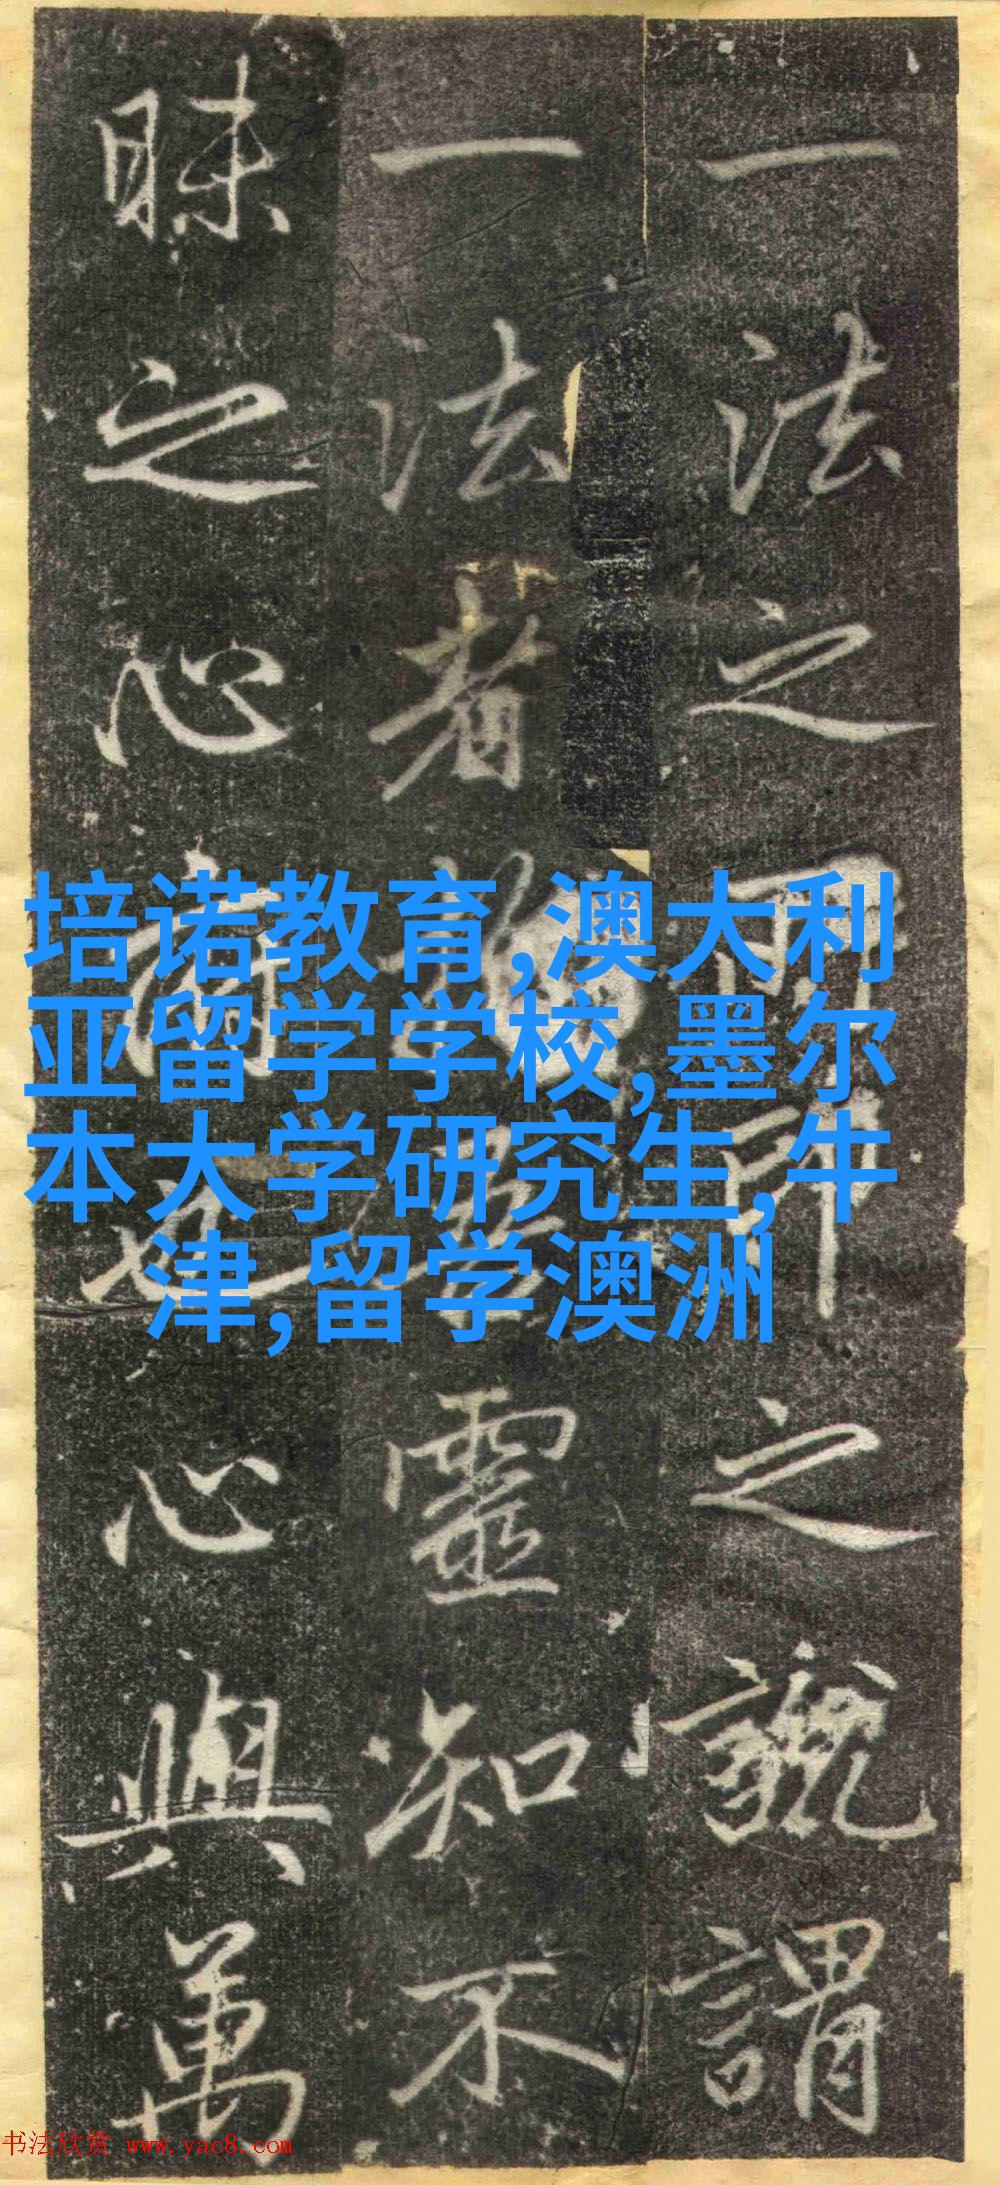 一法之印之號謂
一法者靈知不
昧之心心與萬
培诺教育,澳大利
亚留学学校,墨尔
本大学研究生,牛
津,留学澳洲
书法欣赏 www.yac8.com